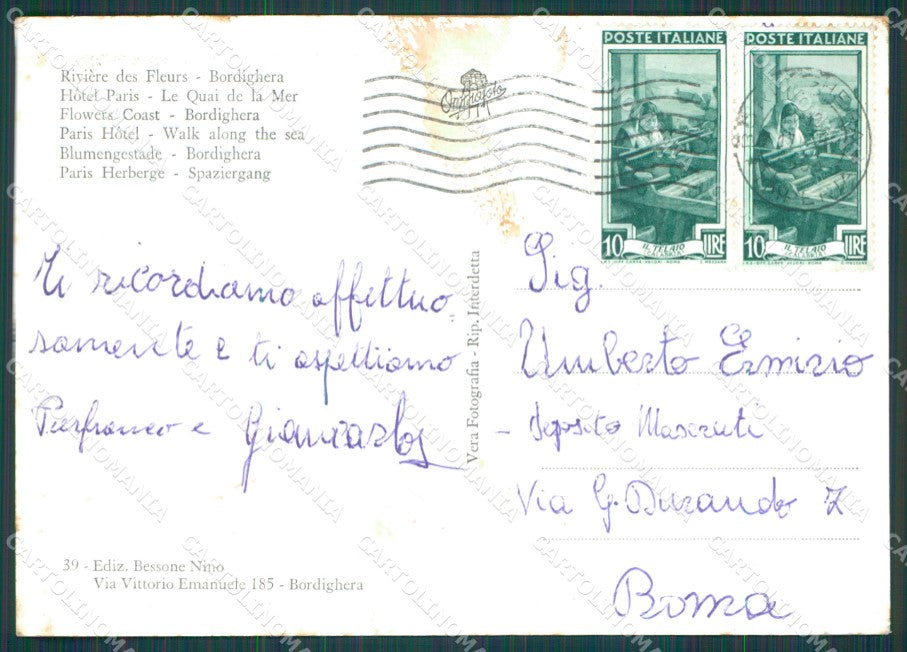 Rivière des Fleurs - Bordighera
Hôtel Paris - Le Quai de la Mer
Flowers Coast - Bordighera
Paris Hôtel - Walk along the sea
Blumengestade - Bordighera
Paris Herberge - Spaziergang
POSTE ITALIANE
10 IL TELAIO LIRE
POSTE ITALIANE
10 IL TELAIO LIRE
Ti ricordiamo affettuo-
samente e ti aspettiamo
Pierfranco e Giancarlo
Vera Fotografia - Rip. Interdetta
Sig.
Umberto Ermirio
- Deposito Maseruti
Via G. Durando 7
Roma
39 - Ediz. Bessone Nino
Via Vittorio Emanuele 185 - Bordighera
CARTOLINOMANIA